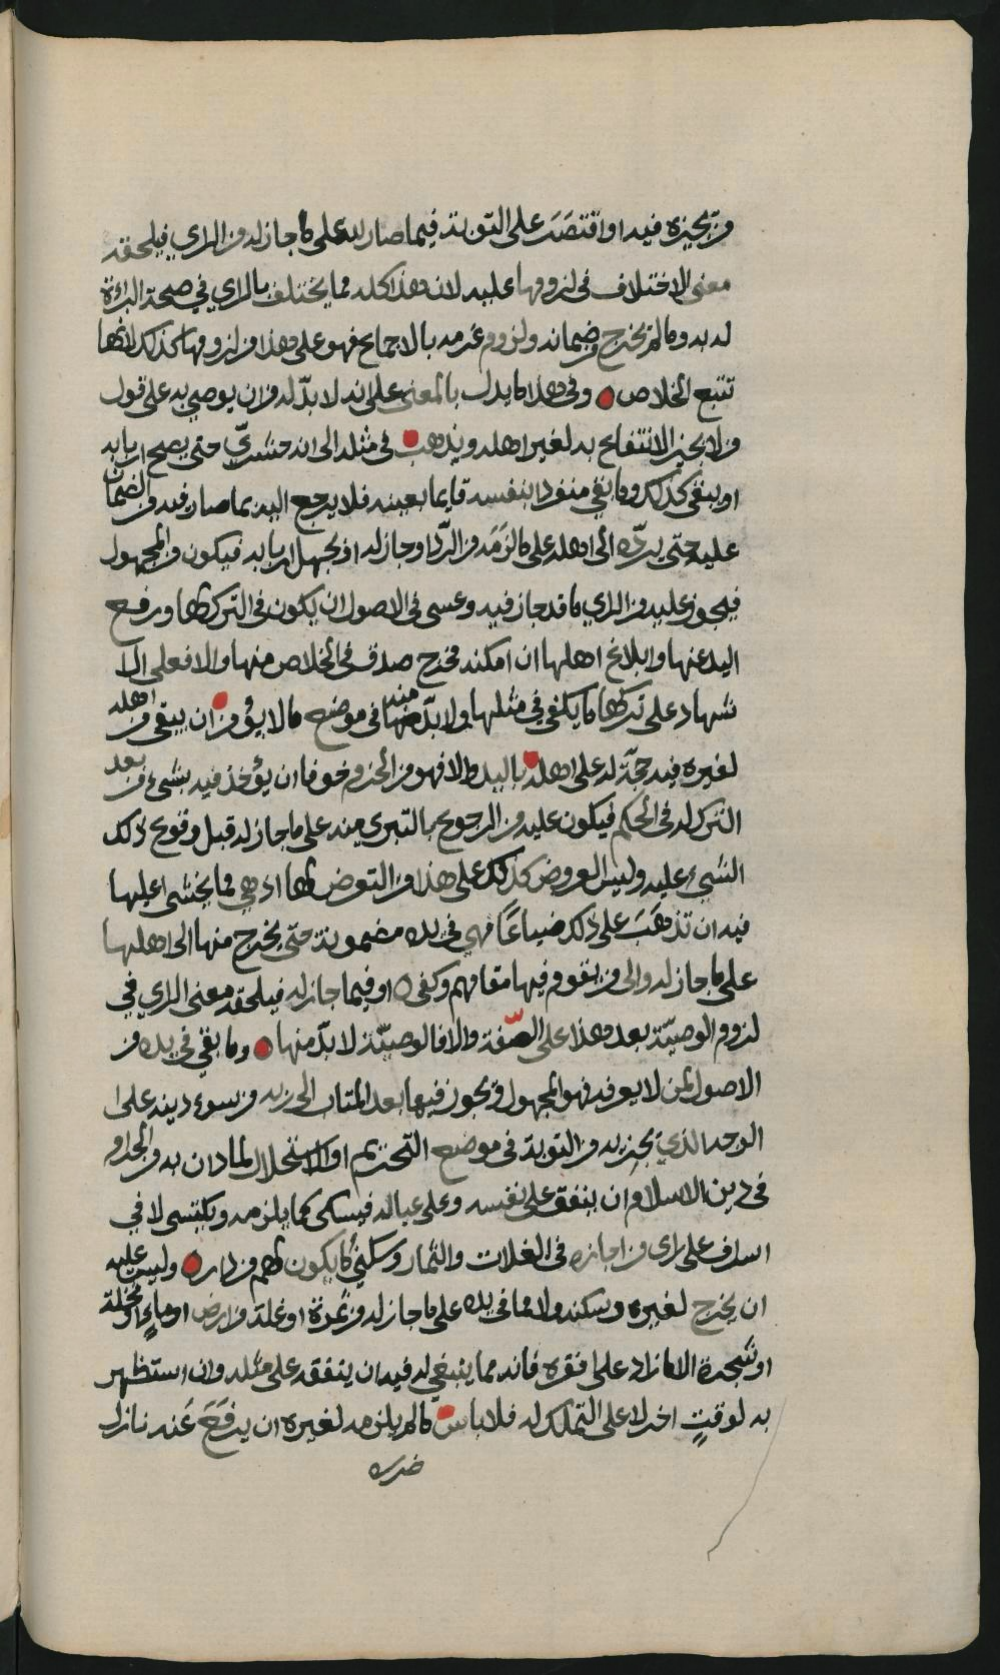 من يجيزه فيه او اقتصر على التوبة فيما صار له على ما جاز له من الراي فيلحقه
معنى الاختلاف في لزومها عليه لان هذا كله مما يختلف بالراي في صحة البراءة
له به وما لم يخرج وضمانه ولزوم غرمه بالاجماع فهو على هذا من لزومها كذلك لانها
تتبع الخلاص وفي هذا ما يدل بالمعنى على انه لا بدّ له من ان يوصي به على قول
من لا يجيز الانتفاع به لغير اهله ويذهب في مثله الى انه حشريّ حتى يصح اربابه
او يبقى كذلك وما بقي منفردا بنفسه قايما بعينه فلا يرجع اليه بما صار فيه من الضمان
عليه حتى يردّه الى اهله على ما لزمه من الردّ او جاز له او يجهل اربابه فيكون من المجهول
فيجوز عليه من الراي ما قد جاز فيه وعسى في الاصول ان يكون في الترك لها ورفع
اليد عنها وابلاغ اهلها ان امكنه مخرج صدق في الخلاص منها والا فعلى الا
شهاد على تركها ما يكفي في مثلها ولا بدّ منه في موضع ما لا يؤمن ان يبقى من اهله
لغيره فيه حجّة له على اهله باليد والا فهو من الحزم خوفا ان يؤخذ فيه بشيء من بعد
الترك له في الحكم فيكون عليه من الرجوع بالتبري منه على ما جاز له قبل وقوع ذلك
الشيء عليه وليس العروض كذلك على هذا من التعوض لها اذ هي مما يخشى عليها
فيه ان تذهب على ذلك ضياعًا فهي في يده مضمونة حتى يخرج منها الى اهلها
على ما جاز له والى من يقوم فيها مقامهم وكفى او فيما جاز له فيلحقه معنى الراي في
لزوم الوصيّة بعد هذا على الصّفة والا فالوصيّة لا بدّ منها وما بقي في يده من
الاصول لمن لا يعرفه فهو المجهول ويجوز فيها بعد المتاب الى ربه من سوء دينه على
الوجه الذي يجزيه من التوبة في موضع التحريم او الاستحلال لما دان به من الجداو
في دين الاسلام ان ينفق على نفسه وعلى عياله فيسكن كما يلزمه ويكتسي لا في
اسراف على راي من اجازه في الغلات والثمار وسكنى ما يكون لهم من داره وليس عليه
ان يخرج لغيره من سكنه ولا مما في يده على ما جاز له من ثمرة او غلة من ارض او ماء او نخلة
او شجرة الا ما زاد على فقره فانه مما ينبغي له فيه ان ينفقه على مثله وان استظهر
به لوقتٍ اخر لا على التملك له فلا باس ما لم يلزمه لغيره ان يدفع عنه نازل
ضره